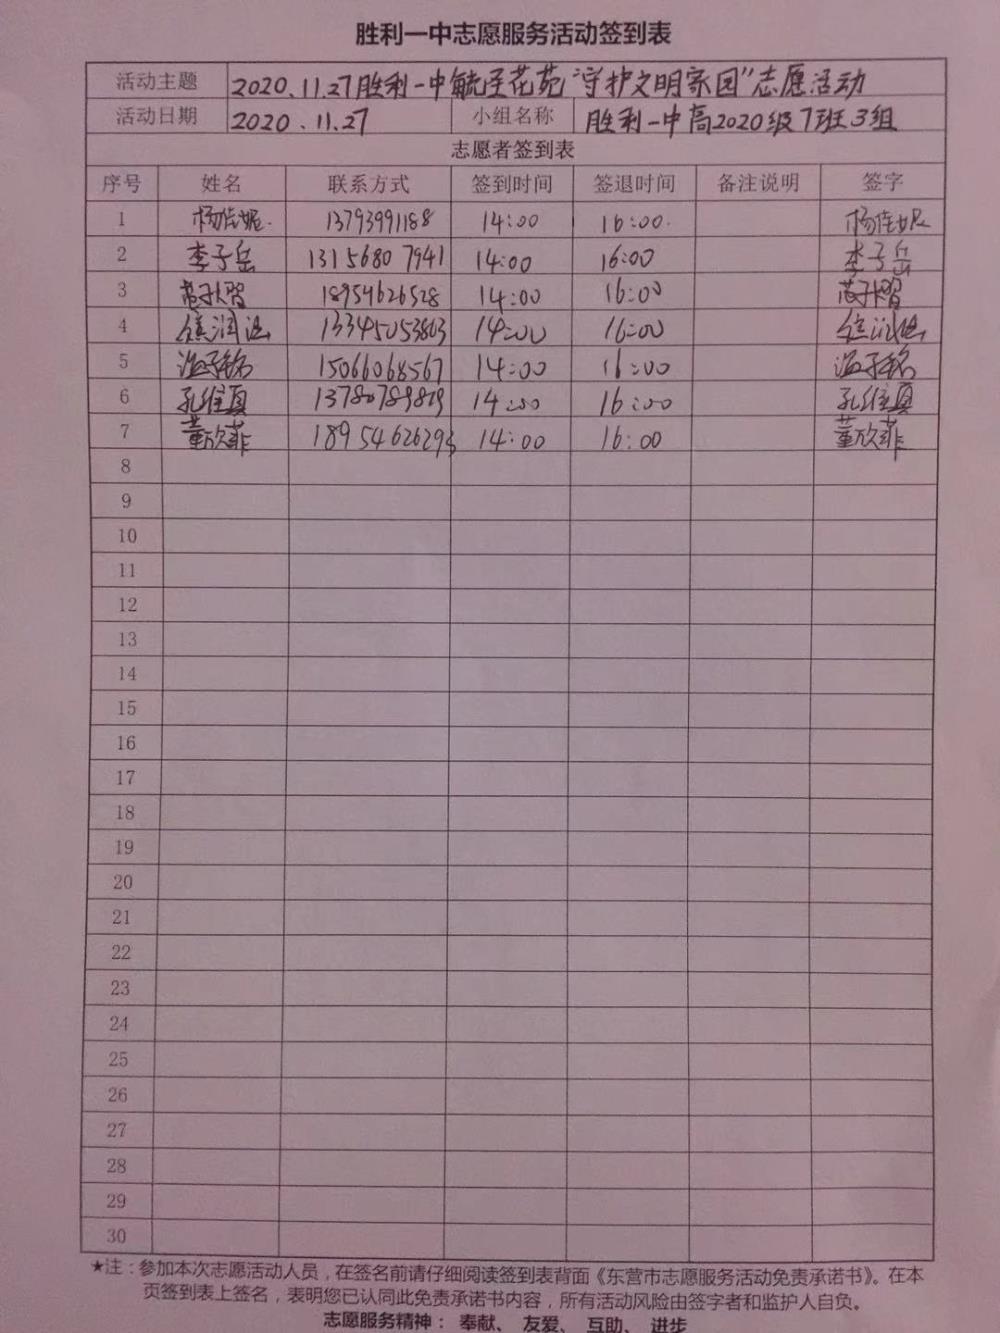 胜利一中志愿服务活动签到表
活动主题 2020.11.27胜利一中毓秀花苑“守护文明家园”志愿活动
活动日期 2020.11.27 小组名称 胜利一中高2020级7班3组
志愿者签到表
序号 姓名 联系方式 签到时间 签退时间 备注说明 签字
1 杨佳妮 13793991188 14:00 16:00 杨佳妮
2 李子岳 13156807941 14:00 16:00 李子岳
3 18954626528 14:00 16:00
4 13345053803 14:00 16:00
5 15066068567 14:00 16:00
6 孔维真 14:00 16:00 孔维真
7 董欣菲 18954626293 14:00 16:00 董欣菲
8
9
10
11
12
13
14
15
16
17
18
19
20
21
22
23
24
25
26
27
28
29
30
★注：参加本次志愿活动人员，在签名前请仔细阅读签到表背面《东营市志愿服务活动免责承诺书》。在本
页签到表上签名，表明您已认同此免责承诺书内容，所有活动风险由签字者和监护人自负。
志愿服务精神： 奉献、 友爱、 互助、 进步